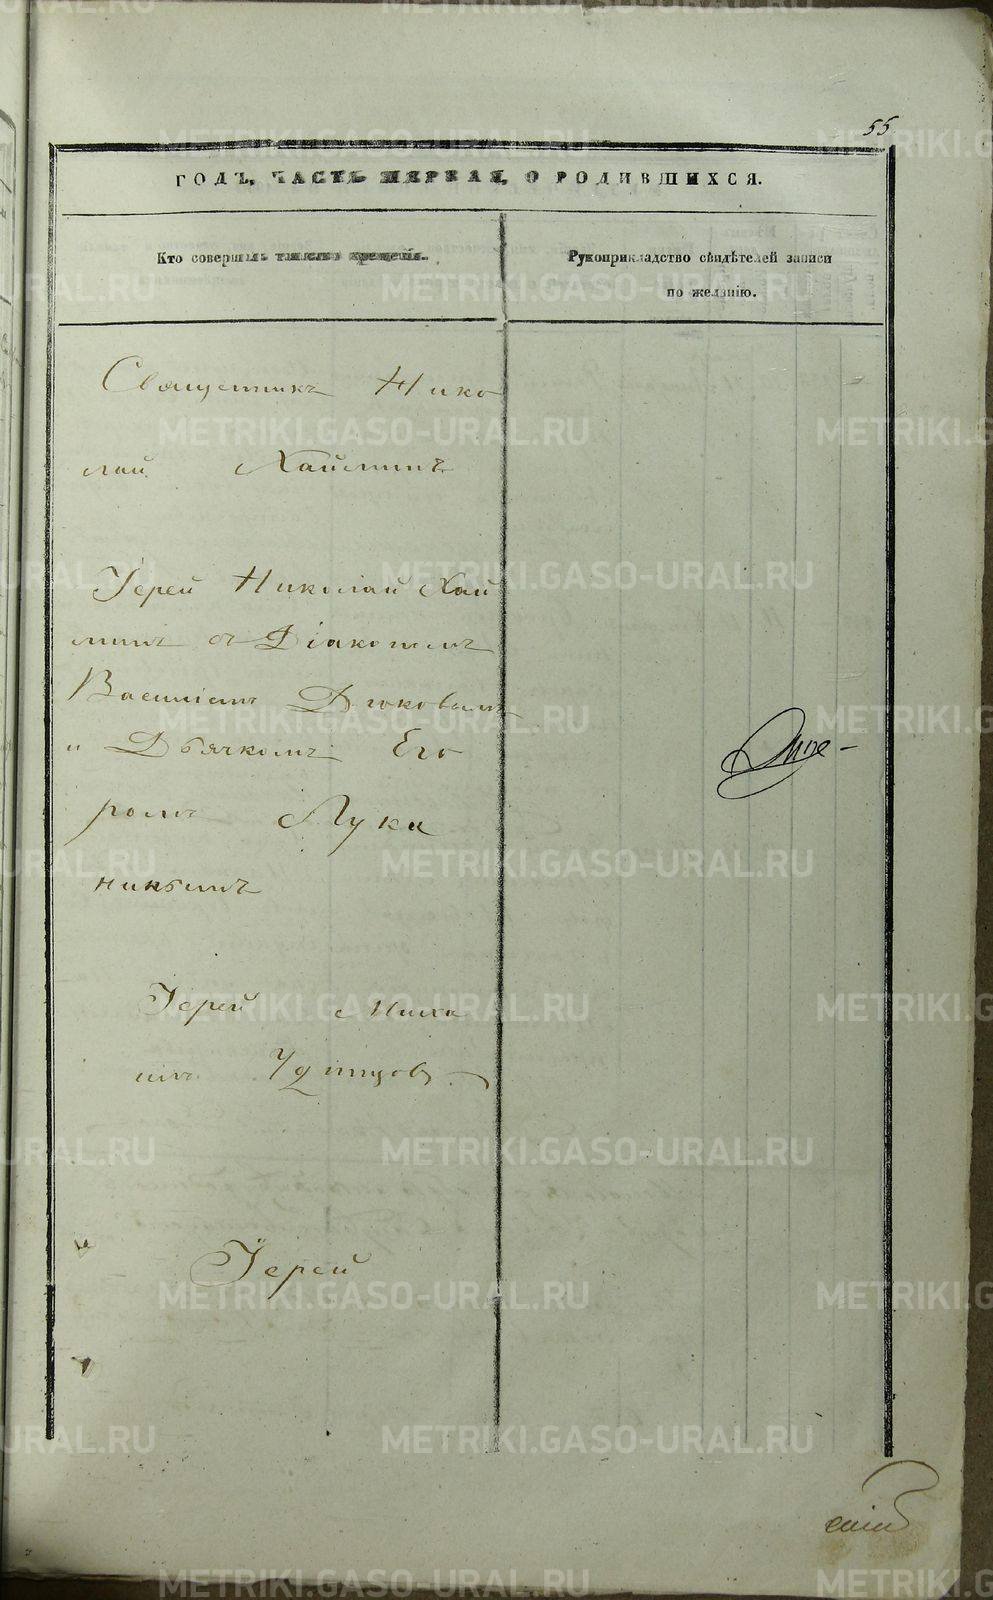 55
ГОДЪ, ЧАСТЬ ПЕРВАЯ, О РОДИВШИХСЯ.
Кто совершалъ таинство крещенія.
Рукоприкладство свидѣтелей записи
по желанію.
Священникъ Нико
лай Хайминъ
Іерей Николай Хай
минъ съ Діакономъ
Василіемъ
и Дьячкомъ Его
ромъ Лука
нинымъ
Іерей Миха
илъ Удинцовъ
Іерей
METRIKI.GASO-URAL.RU